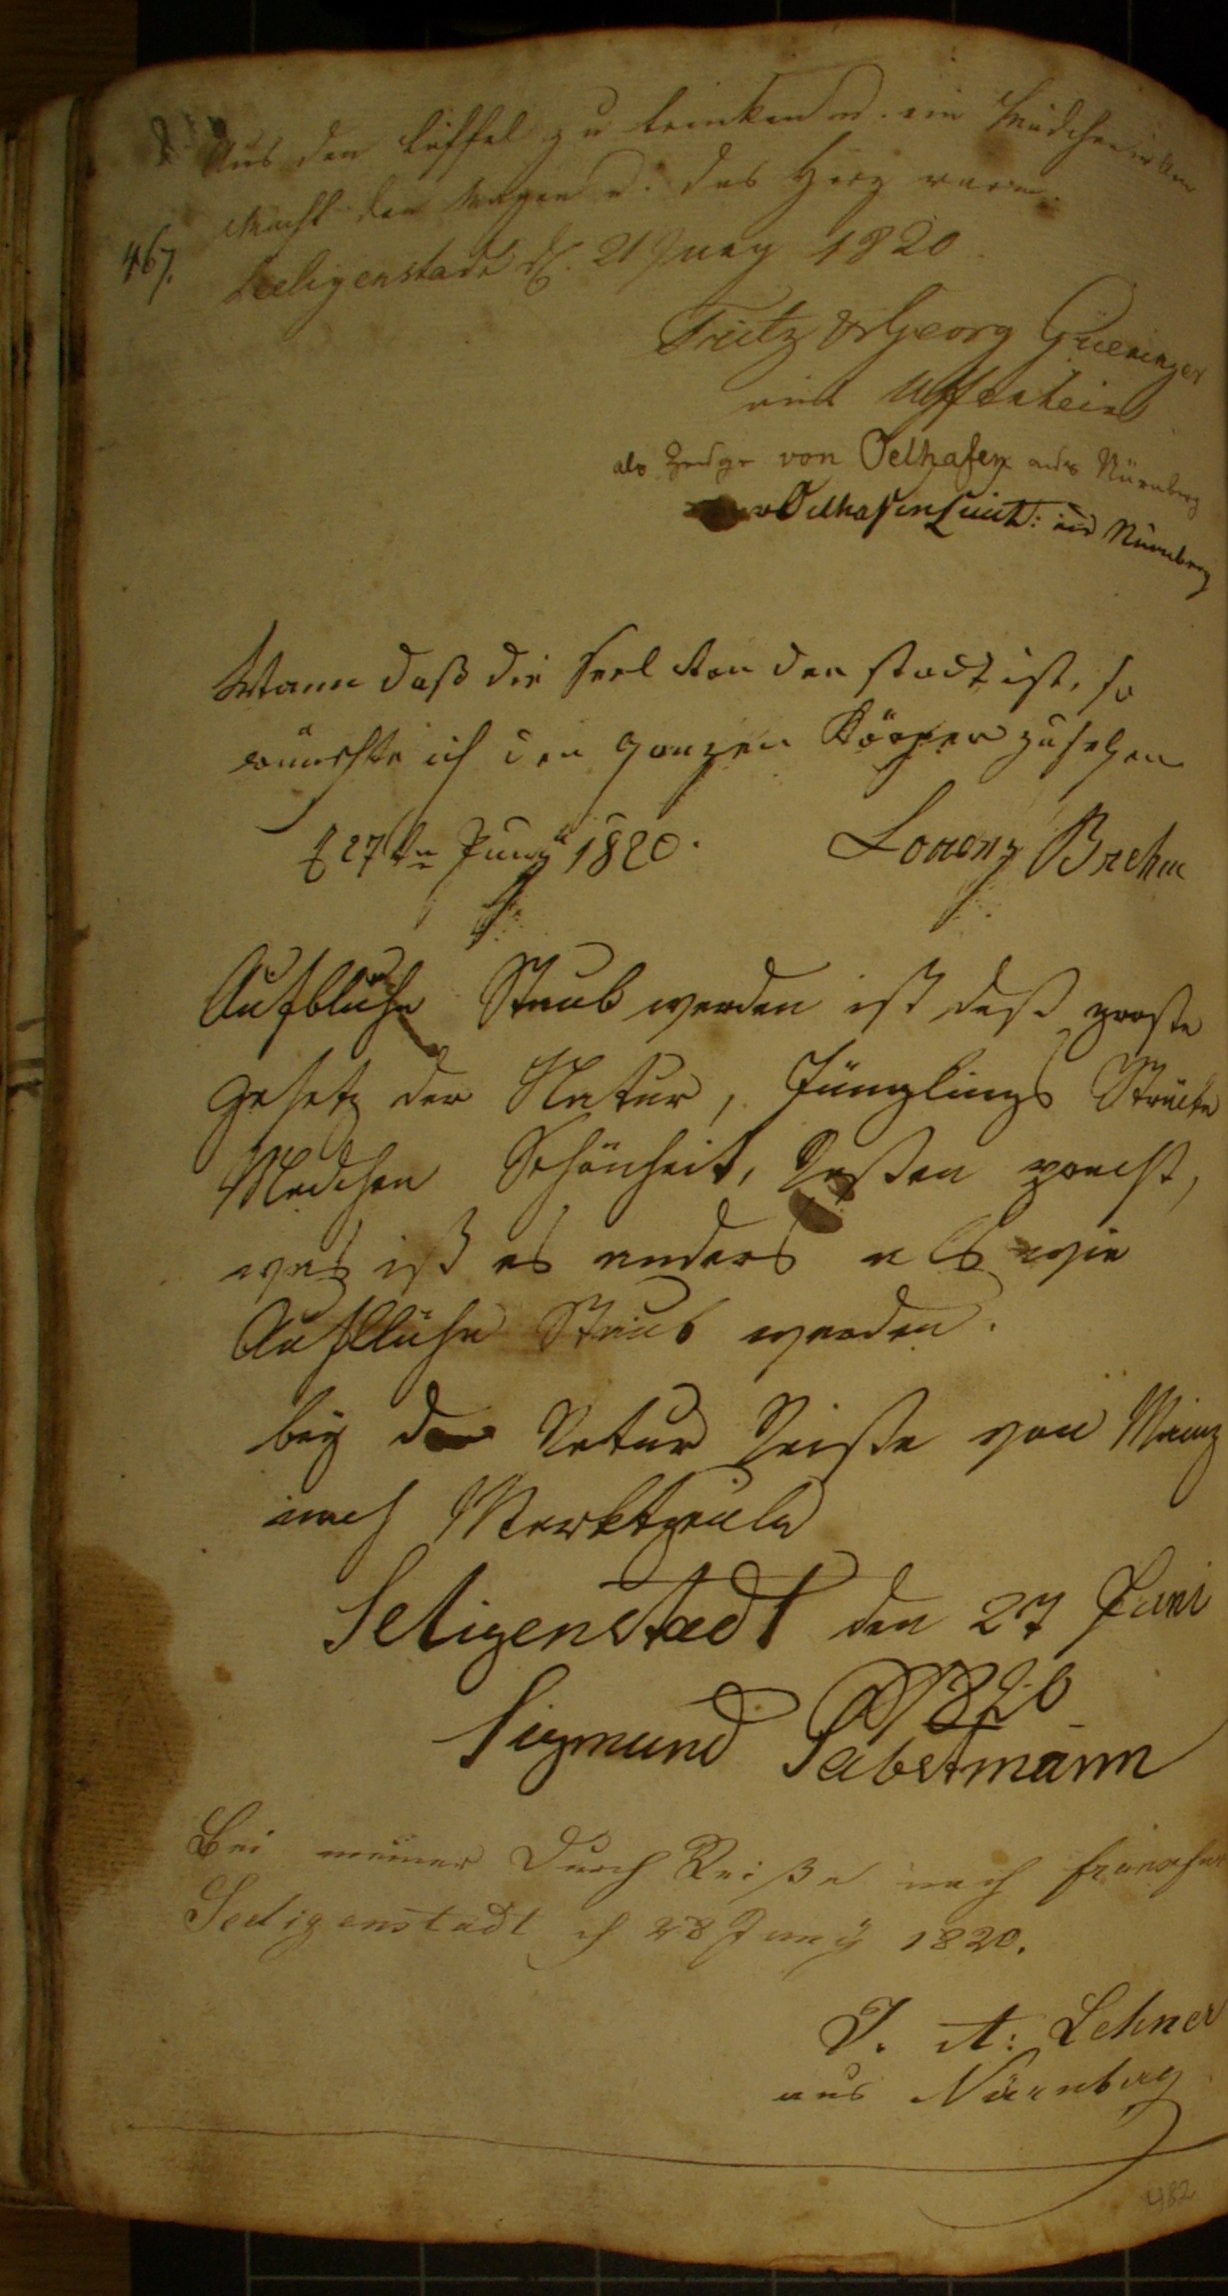 Aus den Löffel zu trinken u. ein Mädchen im Arm
Macht den Magen u. das Herz warm.
467.
Seeligenstadt d. 21 Juny 1820.
Fritz & Georg
aus Uffenheim
als Zeuge von Oelhafen aus Nürnberg
v Oelhafen Lieut: aus Nürnberg
Wann daß die Seel von der stadt ist, so
wünschte ich den ganzen Körper zu sehen
d 27ten Juny 1820. Lorenz Brehm
Aufblühn Staub werden ist daß große
Gesetz der Natur, Jünglings Stärke
Medchen Schönheit, pracht,
was ist es anders als wie
Aufblühn Staub werden.
bey der Retur Reise von Mainz
nach
Seligenstadt den 27 Juni
1820
Sigmund Sabstmann
Bei meiner Durch Reiße nach
Seeligenstadt d 28 Juny 1820.
J. A: Lehner
aus Nürnberg
482